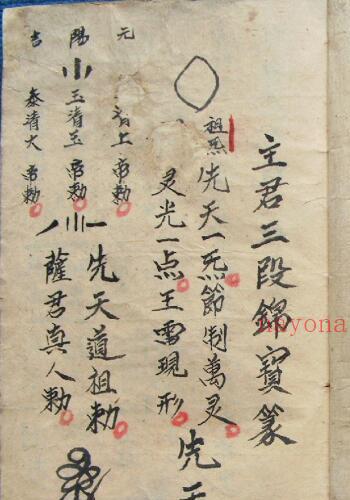 主君三段錦寶篆
祖炁
先天一炁節制萬灵
灵光一点王雷現形
先天
元 陽 吉
清上帝勅
玉清玉帝勅
泰清大帝勅
先天道祖勅
薩君真人勅
nayona